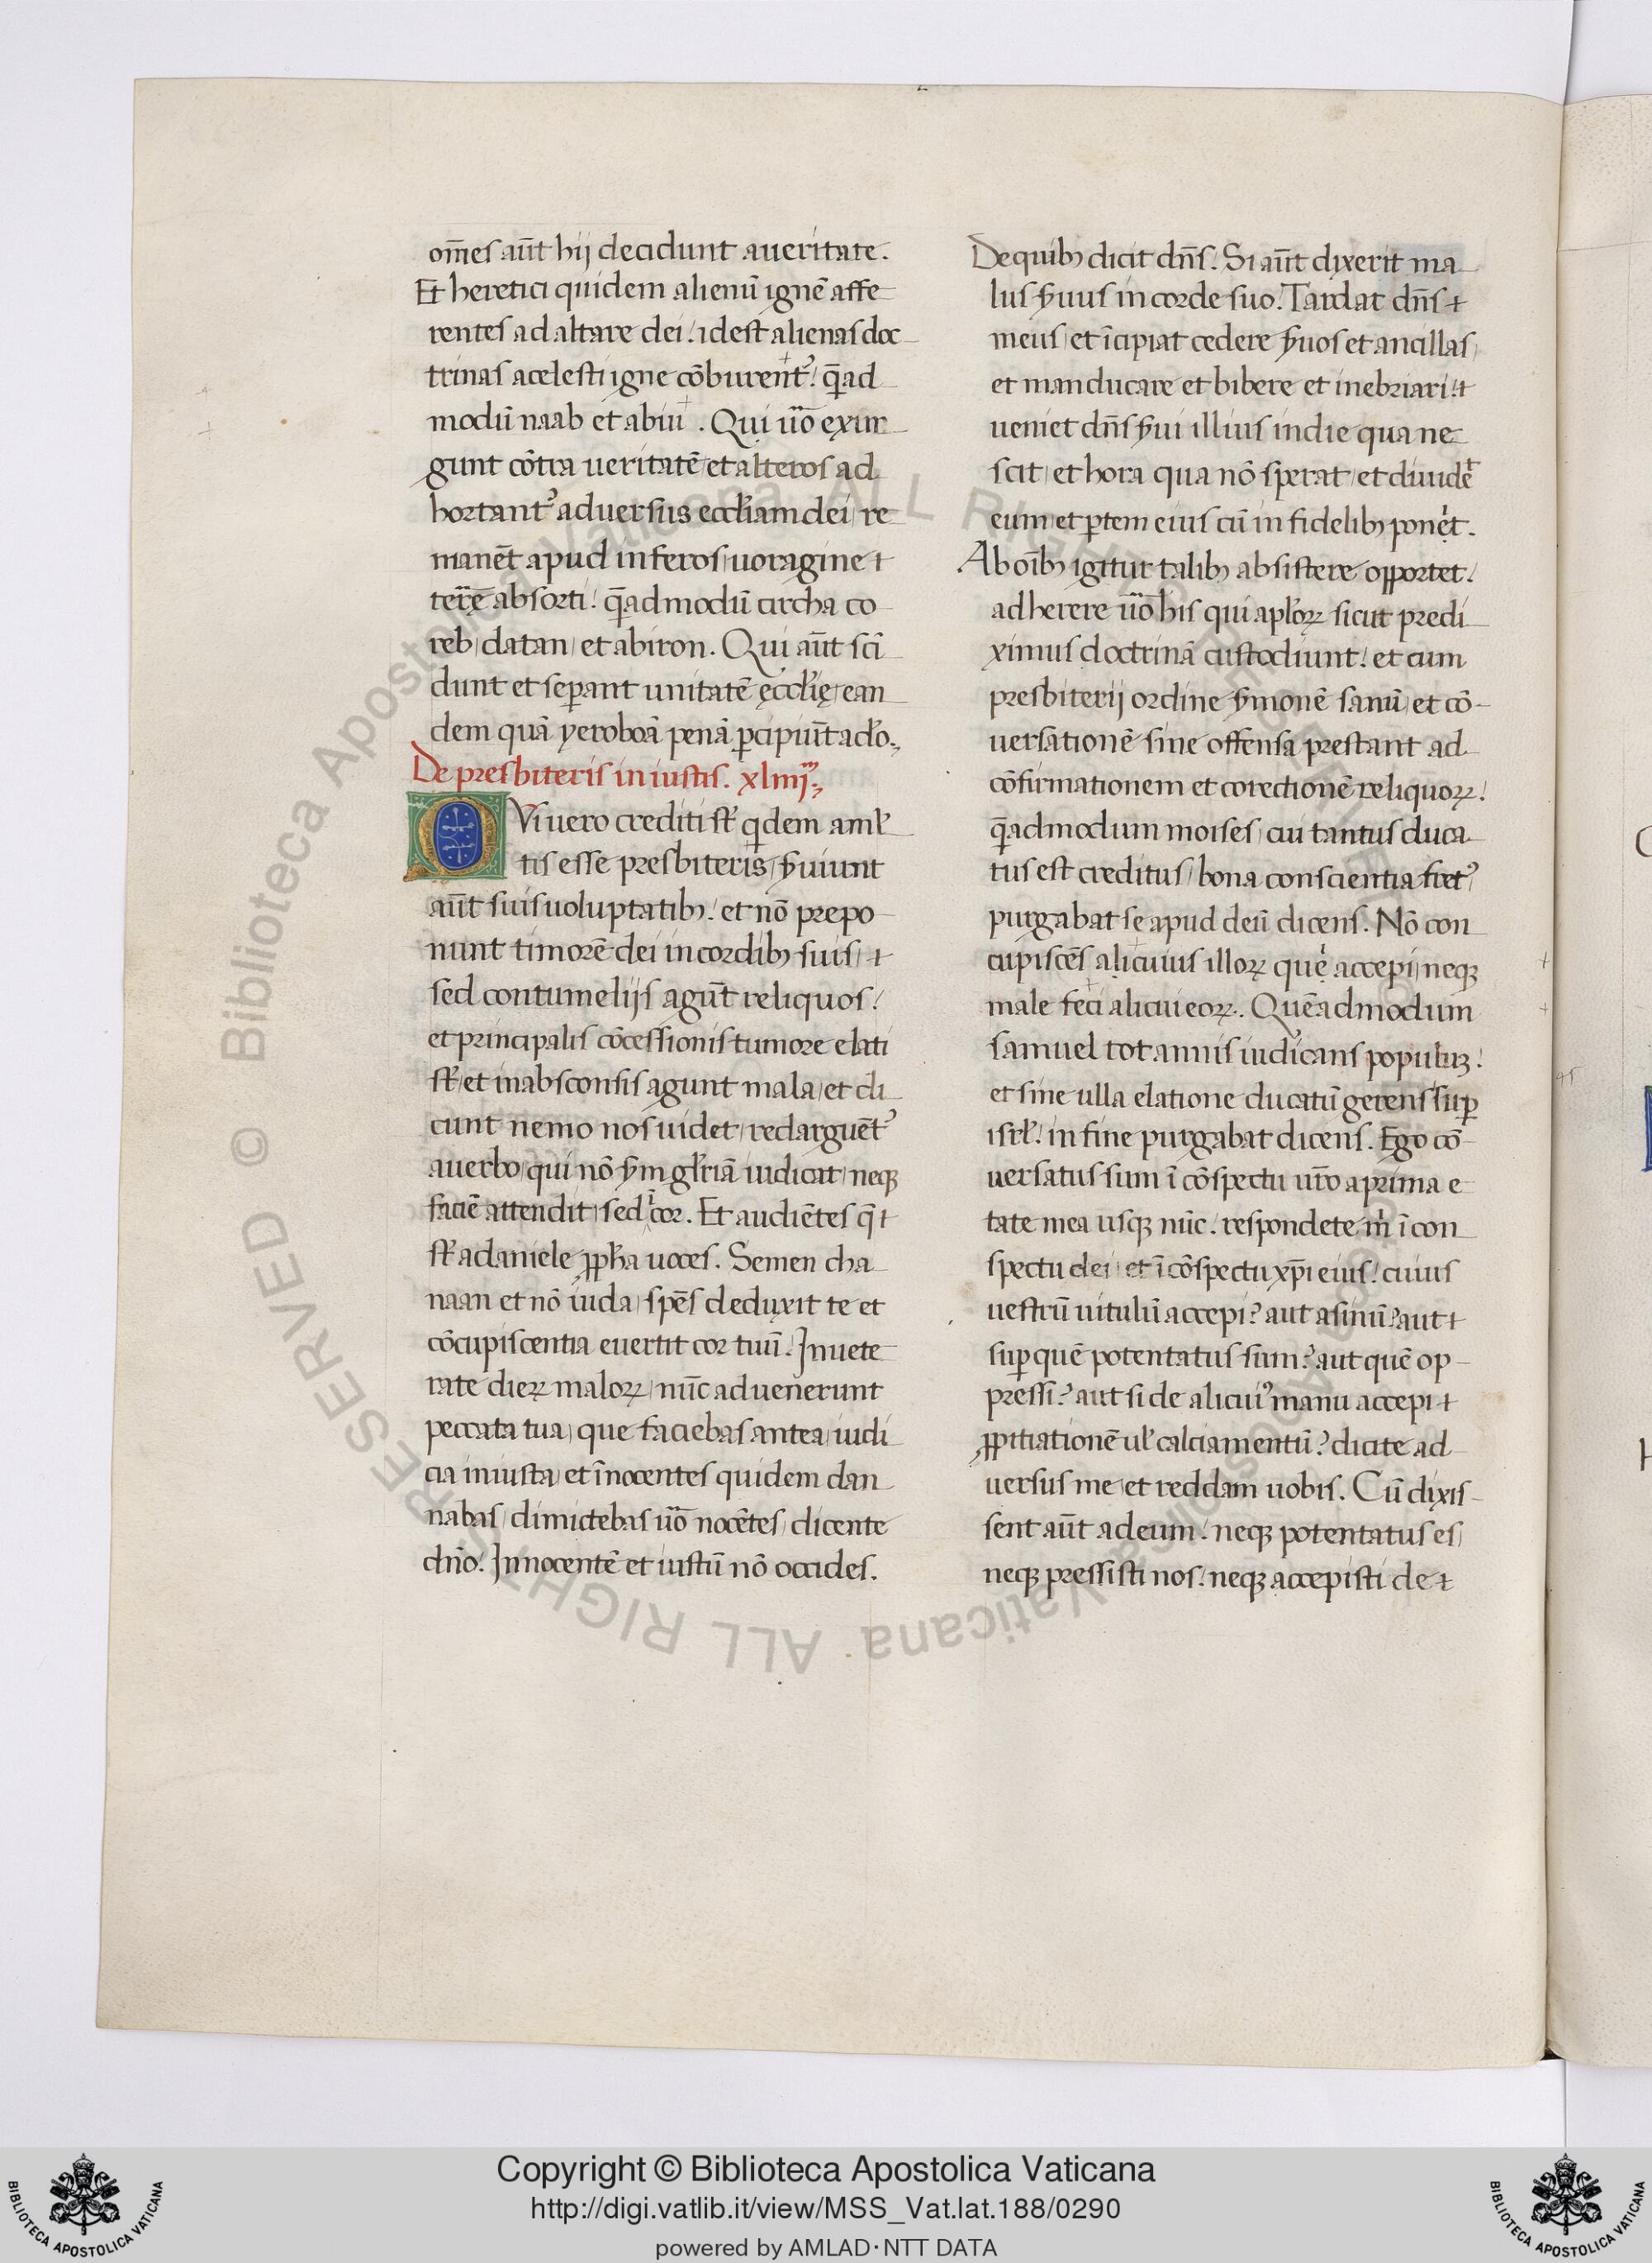 om̄es aūt hij decidunt a ueritate.
Et heretici quidem alienū ignē affe
rentes ad altare dei / idest alienas doc
trinas a celesti igne cōburentᷣ / q̄ad
modū naab et abiu . Qui ūo exur
gunt cōtra ueritatē et alteros ad
hortantᷣ aduersus eccl̄iam dei / re
manēt apud inferos / uoragine
terrę absorti / q̄admodū circha co
reb / datan / et abiron . Qui aūt sci
dunt et seꝑant unitatē ęccl̄ię / ean
dem quā yeroboā penā ꝑcipiūt a d̄o.,
De presbiteris in iustis . xliiij.,
QVi uero crediti st̄ qͥdem a ml̄
tis esse presbiteris / s̄uiunt
aūt suis uoluptatibꝫ / et nō prepo
nunt timorē dei in cordibꝫ suis /
sed contumelijs agūt reliquos /
et principalis cōcessionis tumore elati
st̄ / et in absconsis agunt mala / et di
cunt nemo nos uidet / redarguēt᷒
a uerbo / qui nō s̄m gl̄riā iudicat / neqꝫ
faciē attendit / sed ͥ cor . Et audiētes q̄
st̄ a daniele ꝓph̄a uoces . Semen cha
naan et nō iuda / spēs deduxit te et
cōcupiscentia euertit cor tuū / Inuete
rate dieꝝ maloꝝ / nūc aduenerunt
peccata tua / que faciebas antea / iudi
cia iniusta / et īnocentes quidem dan
nabas / dimictebas ūo nocētes / dicente
dn̄o / Innocentē et iustū nō occides .
De quibꝫ dicit dn̄s / Si aūt dixerit ma
lus s̄uus in corde suo / Tardat dn̄s
meus / et īcipiat cedere s̄uos et ancillas /
et manducare et bibere et inebriari /
ueniet dn̄s s̄ui illius in die qua ne
scit / et hora qua nō sperat / et diuidēt
eum / et ꝑtem eius cū in fidelibꝫ ponet .
Ab oībꝫ igitur talibꝫ absistere opportet /
adherere ūo his qui apl̄oꝝ sicut predi
ximus doctrinā custodiunt / et cum
presbiterij ordine s̄monē sanū / et cō
uersationē sine offensa prestant ad
cōfirmationem et corectionē reliquoꝝ /
q̄admodum moises / cui tantus duca
tus est creditus / bona conscientia fretᷣ /
purgabat se apud deū dicens . Nō con
cupiscēs alicuius illoꝝ quę accepi / neqꝫ
male feci alicui eoꝝ . Quēadmodum
samuel tot annis iudicans populuꝫ /
et sine ulla elatione ducatū gerens suꝑ
isrl̄ / in fine purgabat dicens . Ego cō
uersatus sum ī cōspectu ur̄o a prima e
tate mea usqꝫ nūc / respondete m̍ ī con
spectu dei / et ī cōspectu xp̄i eius / cuius
uestrū uitulū accepi? aut asinū? aut
suꝑ quē potentatus sum? aut quē op
pressi? aut si de alicui᷒ manu accepi
ꝓpitiationē ul̄ calciamentū? dicite ad
uersus me / et reddam uobis . Cū dixis
sent aūt ad eum / neqꝫ potentatus es /
neqꝫ pressisti nos / neqꝫ accepisti de
© Biblioteca Apostolica Vaticana ALL RIGHTS RESERVED
© Biblioteca Apostolica Vaticana ALL RIGHTS RESERVED
Copyright © Biblioteca Apostolica Vaticana
http://digi.vatlib.it/view/MSS_Vat.lat.188/0290
powered by AMLAD·NTT DATA
BIBLIOTECA APOSTOLICA VATICANA
BIBLIOTECA APOSTOLICA VATICANA